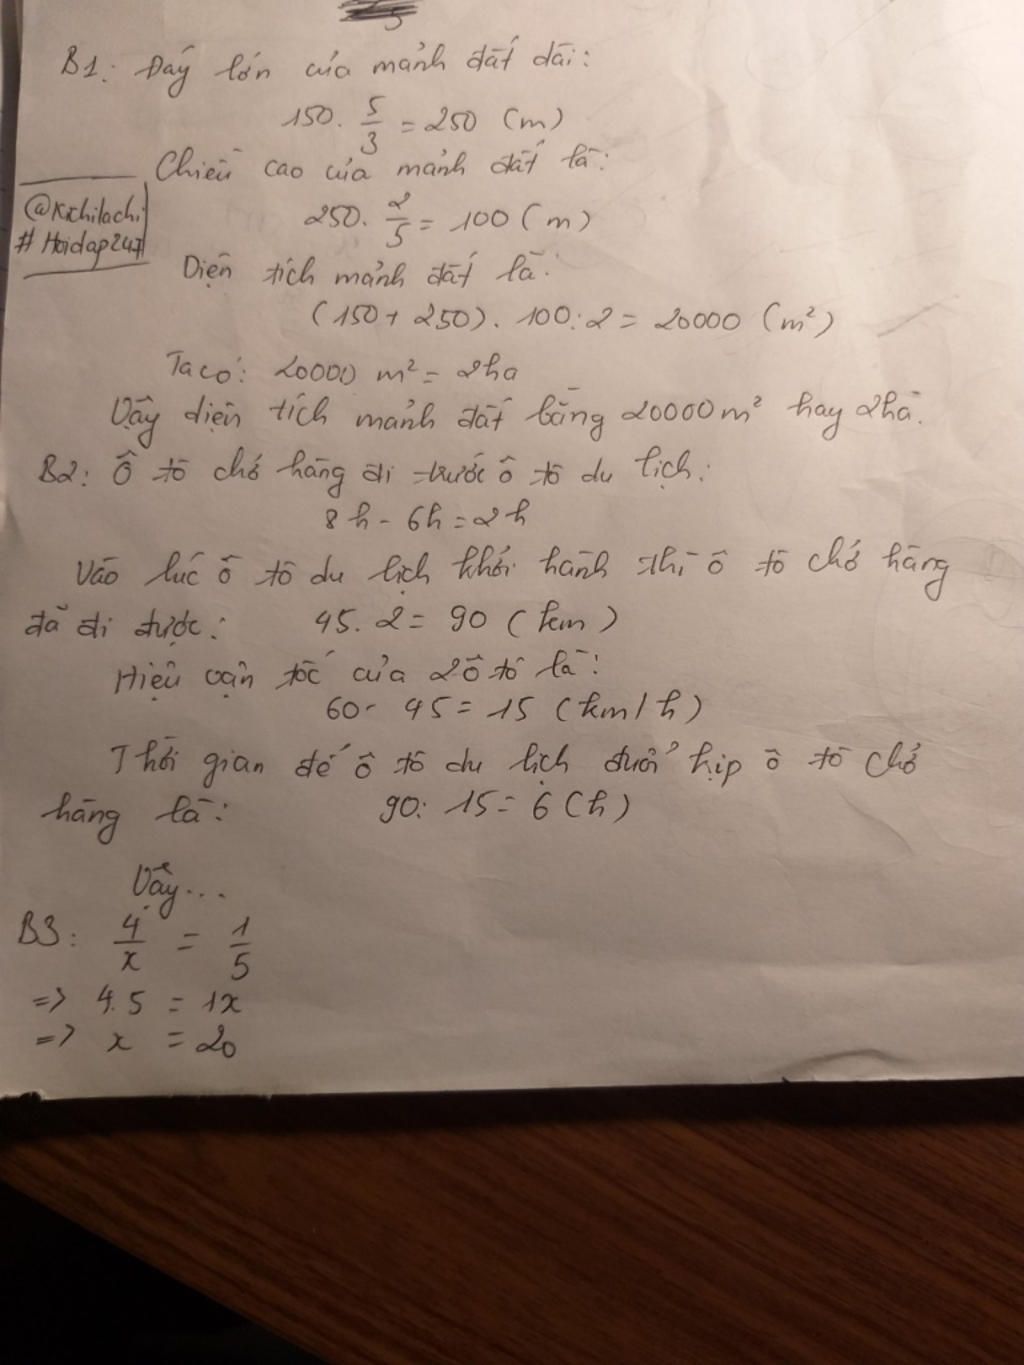 B1: Đáy lớn của mảnh đất dài:
150. 5/3 = 250 (m)
Chiều cao của mảnh đất là:
250. 2/5 = 100 (m)
@Kichilachi
# Hoidap247
Diện tích mảnh đất là:
(150 + 250). 100:2 = 20000 (m²)
Ta có: 20000 m² = 2ha
Vậy diện tích mảnh đất bằng 20000m² hay 2ha.
B2: Ô tô chở hàng đi trước ô tô du lịch:
8h - 6h = 2h
Vào lúc ô tô du lịch khởi hành thì ô tô chở hàng
đã đi được: 45. 2 = 90 (km)
Hiệu vận tốc của 2 ô tô là:
60 - 45 = 15 (km/h)
Thời gian để ô tô du lịch đuổi kịp ô tô chở
hàng là: 90: 15 = 6 (h)
Vậy...
B3: 4/x = 1/5
=> 4.5 = 1x
=> x = 20